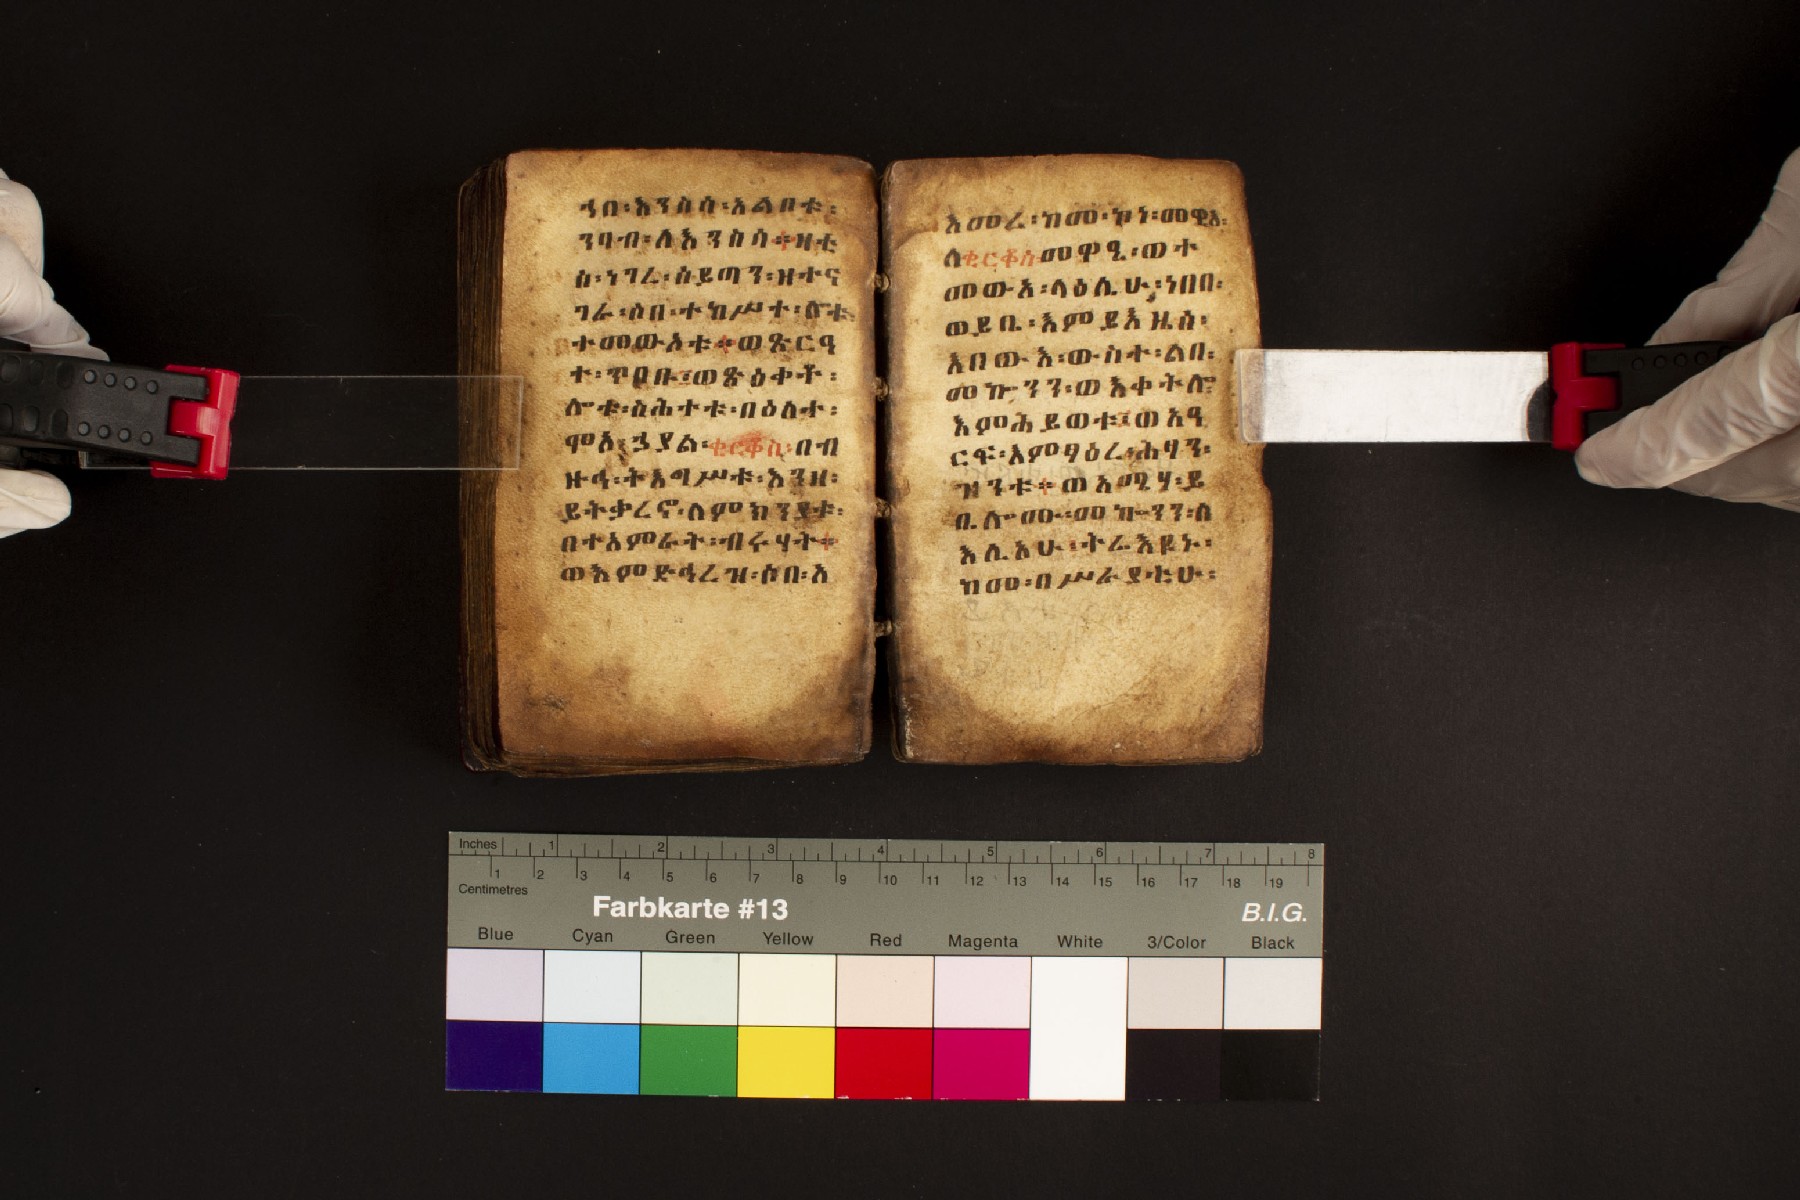 ኀበ፡እንስሳ፡አልቦቱ፡
ንባብ፡ለእንስሳ።ዝቲ
ሰ፡ነገረ፡ሰይጣን፡ዘተና
ገራ፡ሶበ፡ተከሥተ፡ሎቱ፡
ተመውኦቱ።ወጽርዓ
ተ፡ጥበቡ፤ወጽዕቀቶ፡
ሎቱ፡ስሕተቱ፡በዕለተ፡
ሞአ፤ኃያል፡ቂርቆስ፡በብ
ዙኃ፡ትእግሥቱ፡እንዘ፡
ይትቃረኖ፡ለምክንያቱ፡
በተአምራት፡ብሩሃት።
ወእምድኅረዝ፡ሶበ፡አ
እመረ፡ከመ፡ኮነ፡መዊአ፡
ለቂርቆስ፡መዋዒ፡ወተ
መውአ፡ላዕሌሁ፡ነበበ፡
ወይቤ፡እምይእዜሰ፡
እበውእ፡ውስተ፡ልበ፡
መኰንን፡ወእቀትሎ
እምሕይወቱ፤ወአዓ
ርፍ፡እምፃዕረ፡ሕፃን፡
ዝንቱ።ወአሜሃ፡ይ
ቤሎሙ፡መኰንን፡ሰ
እሊአሁ፡ትሬእዩኑ፡
ከመ፡በሥራያቲሁ፡
Inches 1 2 3 4 5 6 7 8
1 2 3 4 5 6 7 8 9 10 11 12 13 14 15 16 17 18 19
Centimetres
Farbkarte #13 B.I.G.
Blue Cyan Green Yellow Red Magenta White 3/Color Black